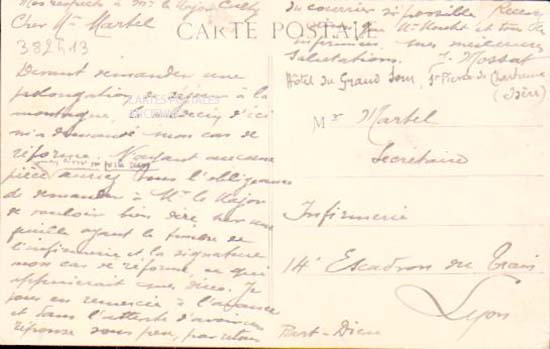 Mes respects à Mr le Major
Cher Mr Martel
382413
Devant demander une
prolongation de séjour à la
montagne, le médecin d'ici
m'a demandé mon cas de
réforme. N'ayant aucune
pièce auriez vous l'obligeance
de demander à Mr le Major
de vouloir bien dire sur une
feuille ayant le timbre de
l'infirmerie et la signature
mon cas de réforme, ce qui
appuierait mes dires. Je
vous en remercie à l'avance
et dans l'attente d'avoir une
réponse sous peu, par retour
du courrier si possible. Recevez
infirmiers, mes meilleures
salutations. J. Mossat
CARTE POSTALE
CARTES POSTALES
Hôtel du Grand Som, St Pierre de Chartreuse
(Isère)
Mr Martel
Secrétaire
Infirmerie
14e Escadron du Train
Lyon
Part-Dieu